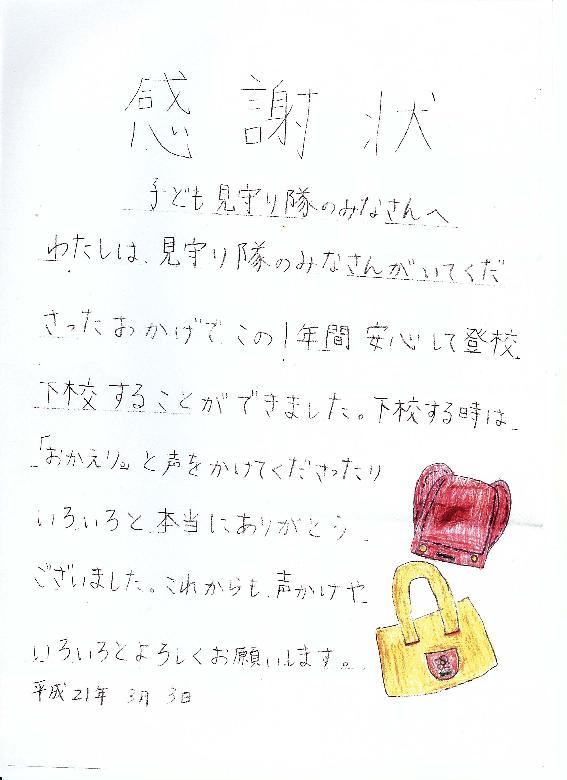 感謝状
子ども見守り隊のみなさんへ
わたしは、見守り隊のみなさんがいてくだ
さったおかげでこの1年間安心して登校
下校することができました。下校する時は
「おかえり。」と声をかけてくださったり
いろいろと本当にありがとう
ございました。これからも、声かけや
いろいろとよろしくお願いします。
平成21年 3月 3日